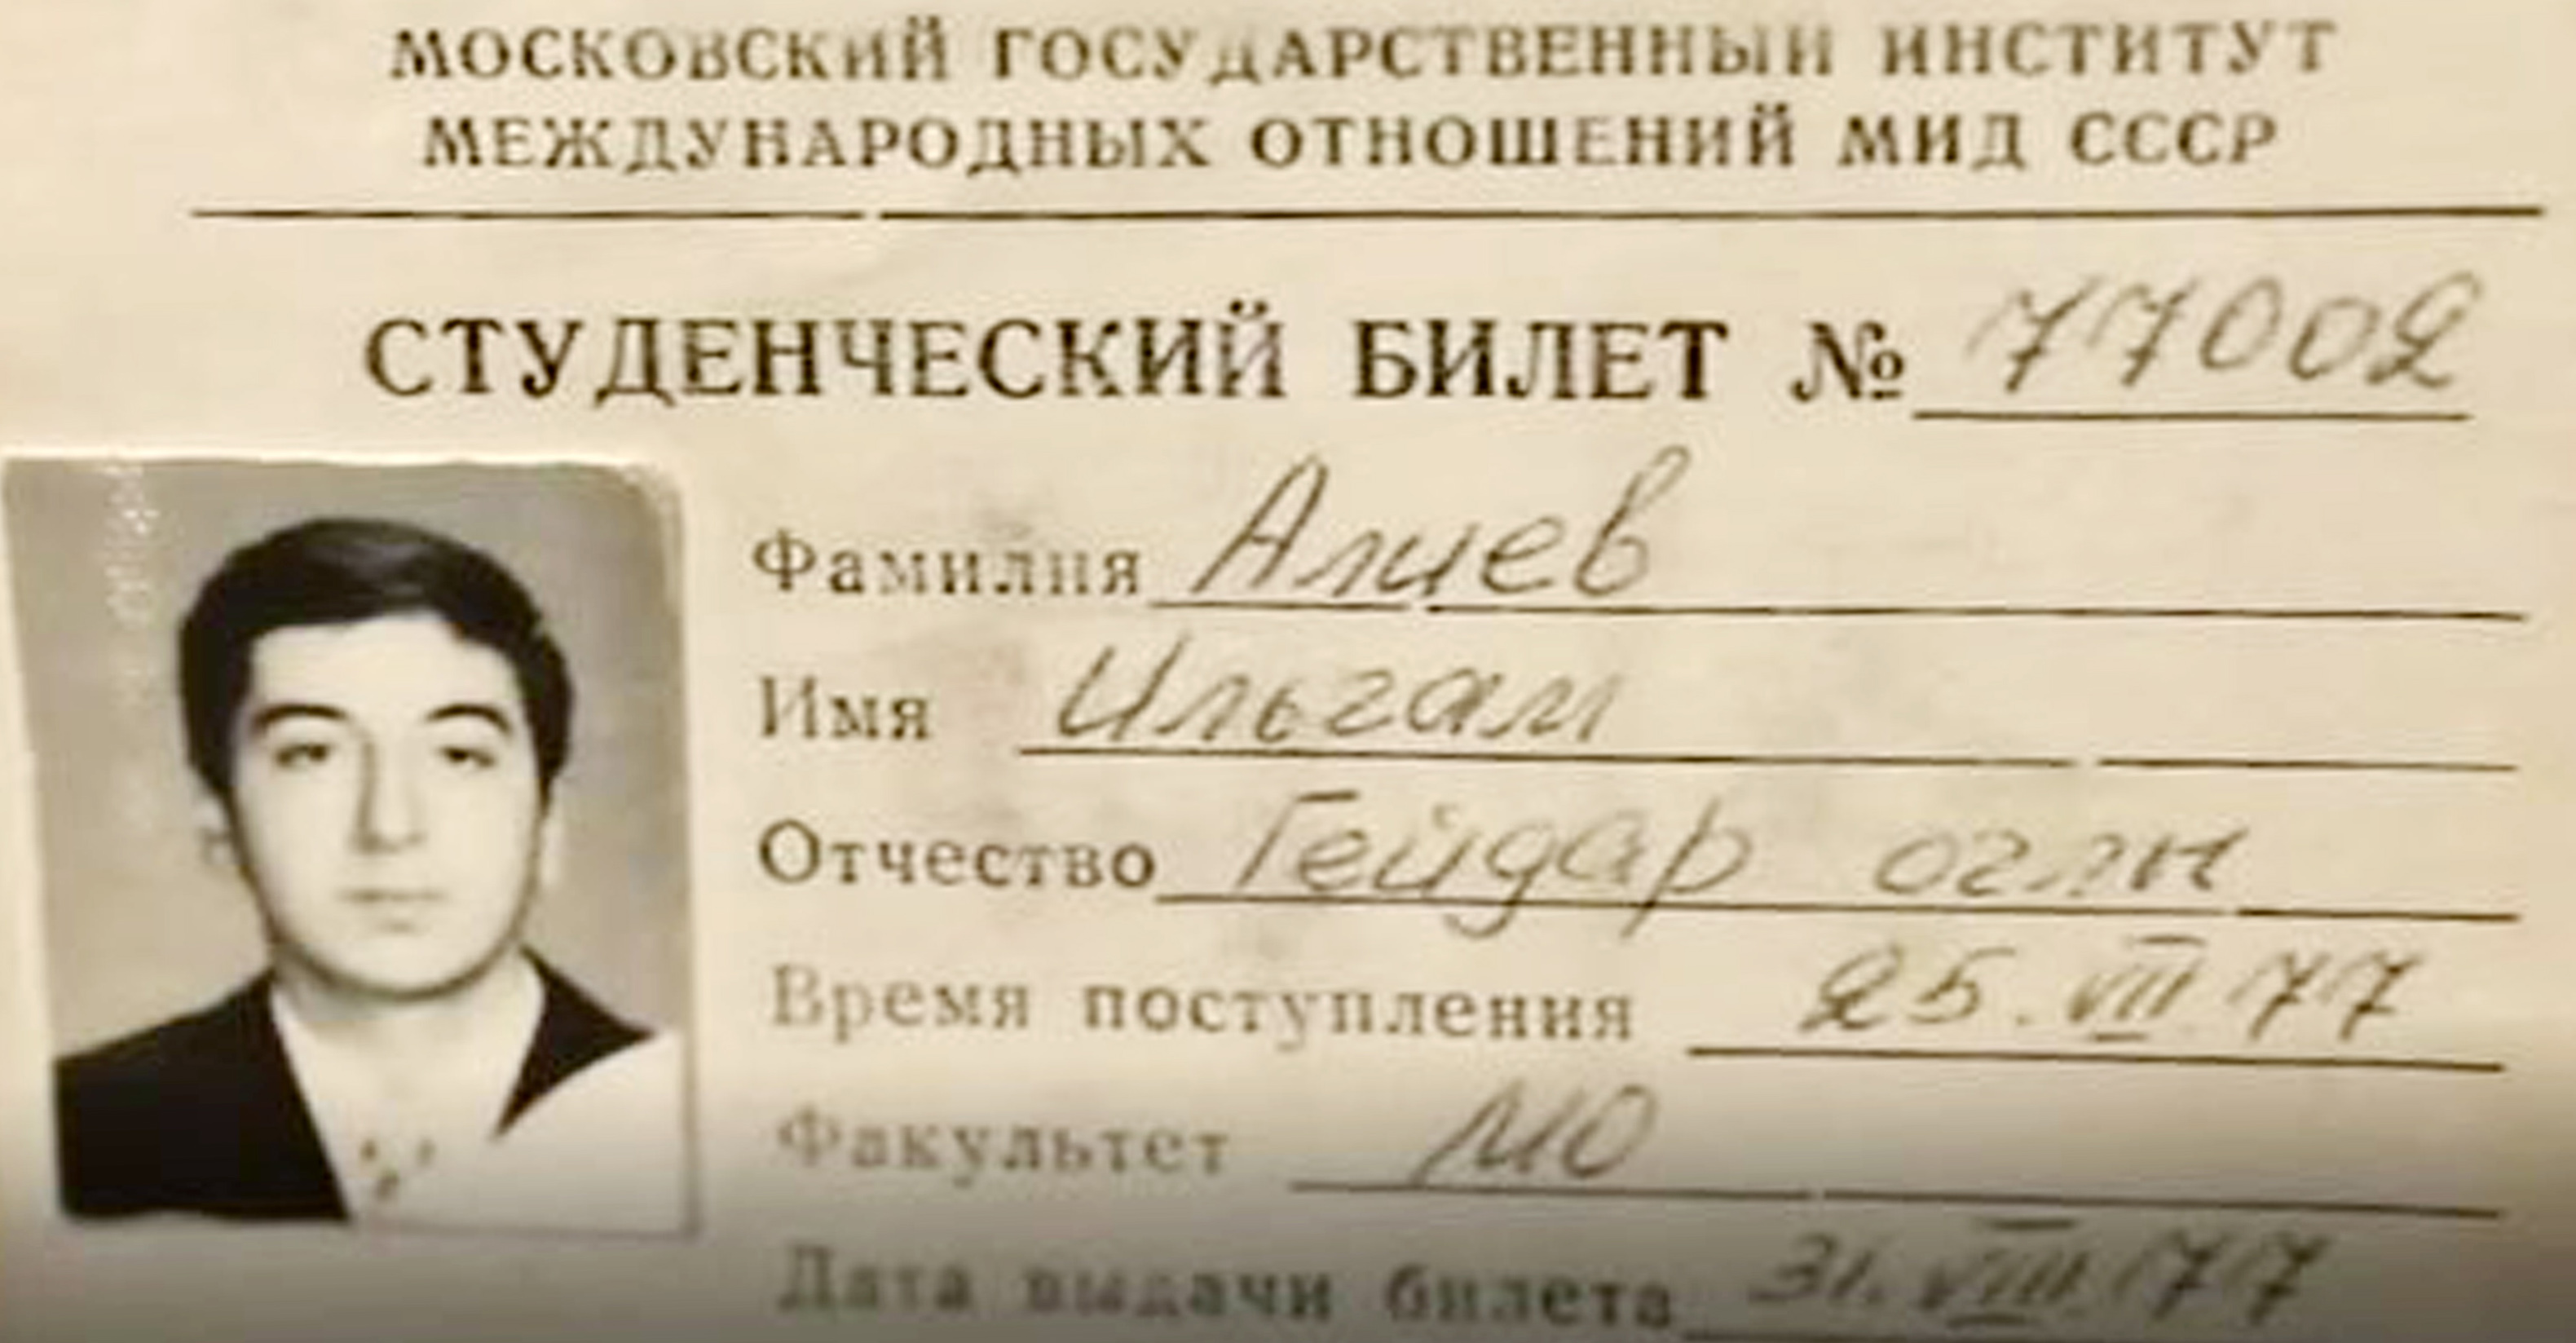 МОСКОВСКИЙ ГОСУДАРСТВЕННЫЙ ИНСТИТУТ
МЕЖДУНАРОДНЫХ ОТНОШЕНИЙ МИД СССР
СТУДЕНЧЕСКИЙ БИЛЕТ № 77002
Фамилия Алиев
Имя Ильгам
Отчество Гейдар оглы
Время поступления 25.VIII 77
Факультет МО
Дата выдачи билета 31.VIII.77